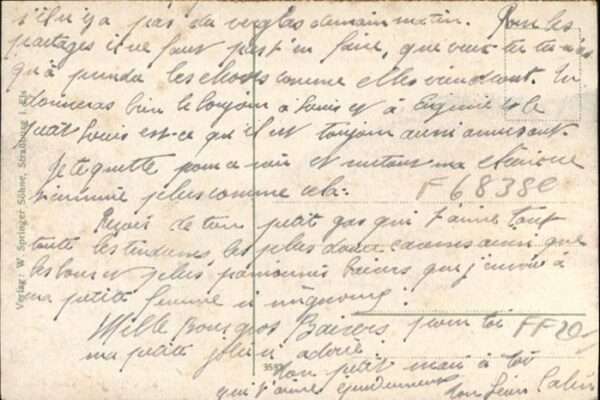 s'il n'y a pas du verglas demain matin. Pour les
partages il ne faut pas t'en faire, que veux tu tu n'as
qu'à prendre les choses comme elles viendront. Tu
donneras bien le bonjour à Louis et à Eugénie et le
petit Louis est-ce qu'il est toujours aussi amusant.
Je te quitte pour ce soir et surtout ma chérie ne
t'ennuie plus comme cela.
F 6838e
Reçois de ton petit gas qui t'aime tout
toute les tendresses, les plus doux caresses ainsi que
les bons et plus passionnés baisers que j'envoie à
ma petite femme si mignonne!
Mille Bons Gros Baisers pour toi
FF20
ma petite jolie adorée
3587
Ton petit mari à toi
qui t'aime éperdument
Ton Léon
Verlag: W. Springer Söhne, Strassburg i. Els